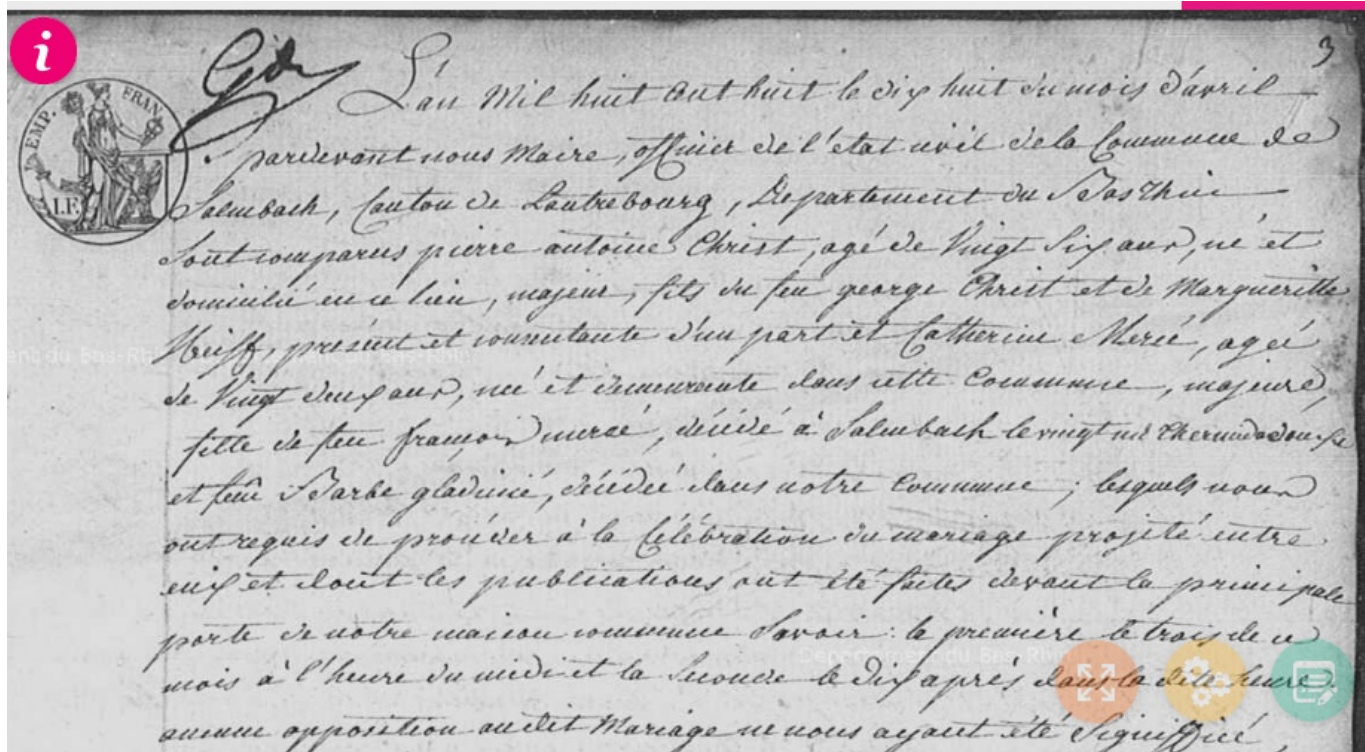 3
L'an Mil huit Cent huit le dix huit du mois d'avril
pardevant nous Maire, officier de l'état civil de la Commune de
Salmbach, Canton de Lautrebourg, Departement du Bas Rhin
Sont comparus pierre antoine Christ, agé de Vingt Six ans, né et
domicilié en ce lieu, majeur, fils du feu george Christ et de Margueritte
present et consentante d'un part et Catherine Mercé, agée
de Vingt deux ans, née et demeurante dans cette Commune, majeure,
fille de feu françois mercé, décédé à Salmbach le vingt
et feue Barbe décédée dans notre Commune; lesquels nous
ont requis de procéder à la Célébration du mariage projeté entre
eux et dont les publications ont été faites devant la principale
porte de notre maison commune Savoir: la première le trois de ce
mois à l'heure du midi et la Seconde le dix après dans la dite heure.
aucune opposition audit Mariage ne nous ayant été Signiffiée
EMP. FRAN.
I.F.
i